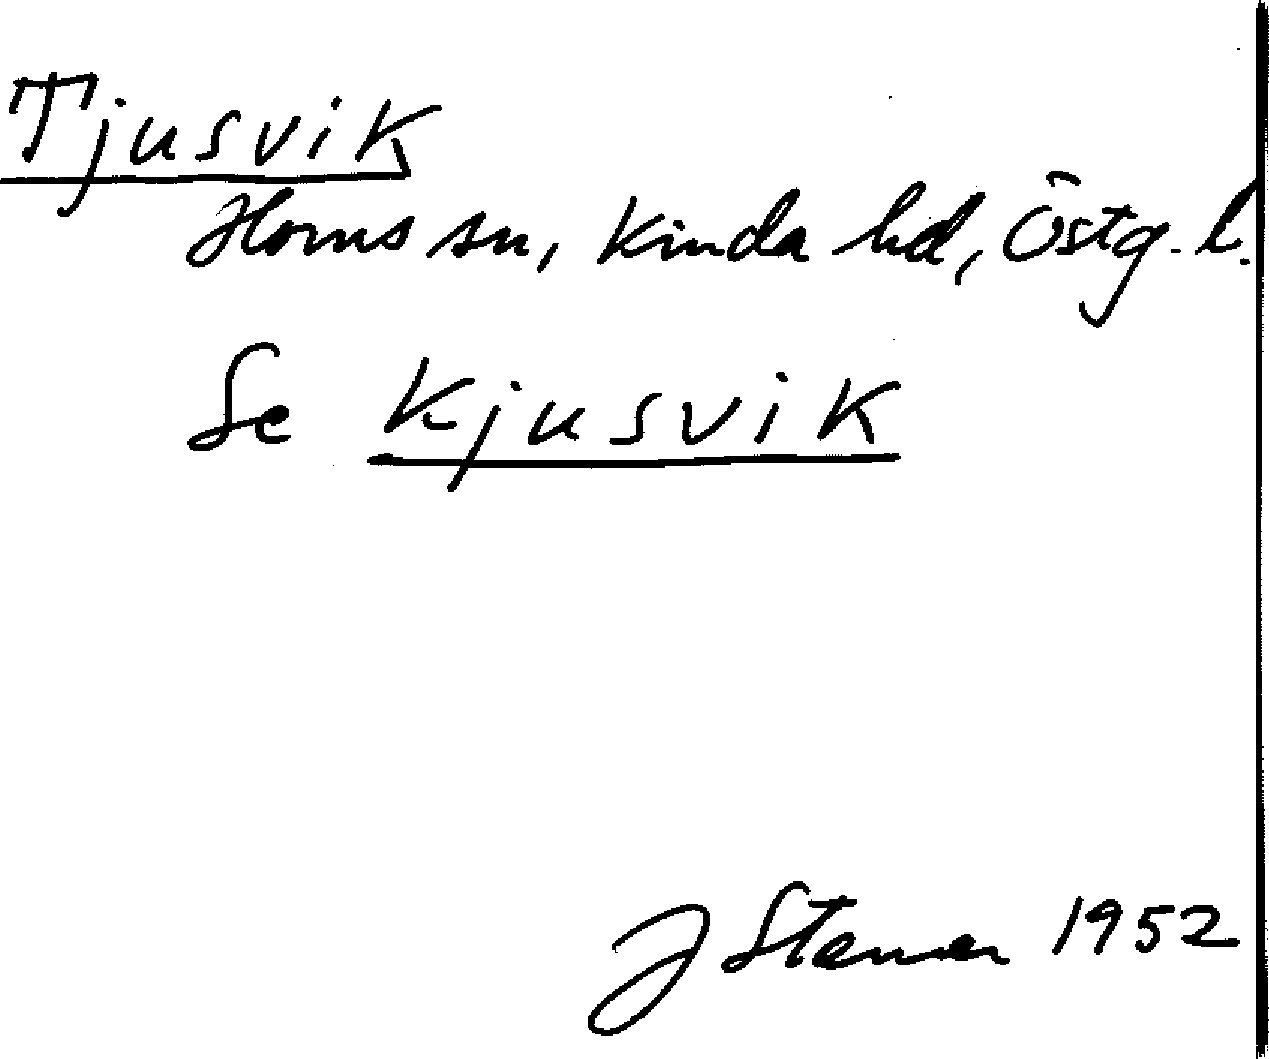 Tjusvik
Horns sn, Kinda hd, Östg. l.
Se Kjusvik
J 1952